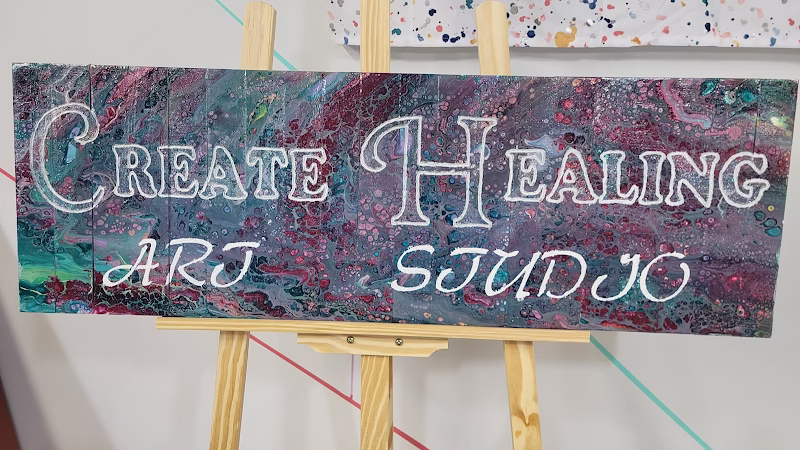 CREATE HEALING
ART STUDIO